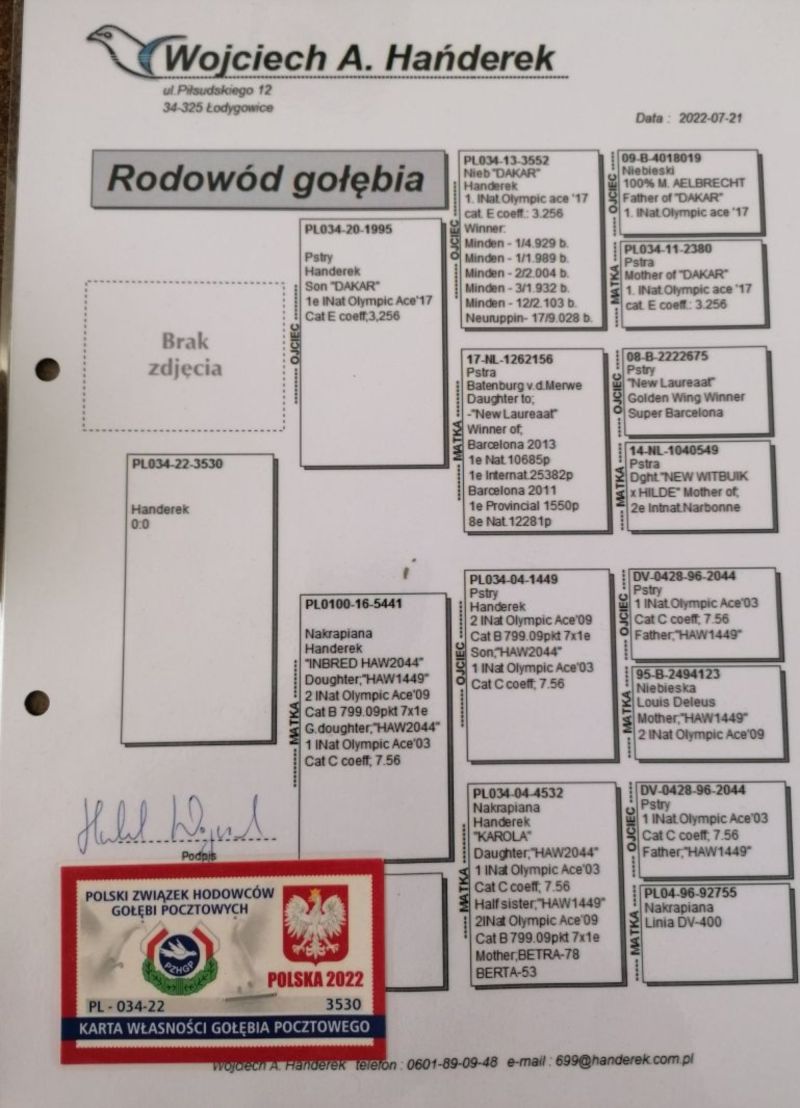 Wojciech A. Hańderek
ul.Piłsudskiego 12
34-325 Łodygowice
Data : 2022-07-21
Rodowód gołębia
Brak
zdjęcia
PL034-22-3530
Handerek
0:0
OJCIEC
PL034-20-1995
Pstry
Handerek
Son "DAKAR"
1e INat Olympic Ace'17
Cat E coeff;3,256
MATKA
PL0100-16-5441
Nakrapiana
Handerek
"INBRED HAW2044"
Doughter;"HAW1449"
2 INat Olympic Ace'09
Cat B 799.09pkt 7x1e
G.doughter;"HAW2044"
1 INat Olympic Ace'03
Cat C coeff; 7.56
OJCIEC
PL034-13-3552
Nieb "DAKAR"
Handerek
1. INat.Olympic ace '17
cat. E coeff.: 3.256
Winner:
Minden - 1/4.929 b.
Minden - 1/1.989 b.
Minden - 2/2.004 b.
Minden - 3/1.932 b.
Minden - 12/2.103 b.
Neuruppin- 17/9.028 b.
MATKA
17-NL-1262156
Pstra
Batenburg v.d.Merwe
Daughter to;
-"New Laureaat"
Winner of;
Barcelona 2013
1e Nat.10685p
1e Internat.25382p
Barcelona 2011
1e Provincial 1550p
8e Nat.12281p
OJCIEC
PL034-04-1449
Pstry
Handerek
2 INat Olympic Ace'09
Cat B 799.09pkt 7x1e
Son;"HAW2044"
1 INat Olympic Ace'03
Cat C coeff; 7.56
MATKA
PL034-04-4532
Nakrapiana
Handerek
"KAROLA"
Daughter;"HAW2044"
1 INat Olympic Ace'03
Cat C coeff; 7.56
Half sister;"HAW1449"
2INat Olympic Ace'09
Cat B 799.09pkt 7x1e
Mother;BETRA-78
BERTA-53
OJCIEC
09-B-4018019
Niebieski
100% M. AELBRECHT
Father of "DAKAR"
1. INat.Olympic ace '17
MATKA
PL034-11-2380
Pstra
Mother of "DAKAR"
1. INat.Olympic ace '17
cat. E coeff.: 3.256
OJCIEC
08-B-2222675
Pstry
"New Laureaat"
Golden Wing Winner
Super Barcelona
MATKA
14-NL-1040549
Pstra
Dght."NEW WITBUIK
x HILDE" Mother of;
2e Intnat.Narbonne
OJCIEC
DV-0428-96-2044
Pstry
1 INat.Olympic Ace'03
Cat C coeff; 7.56
Father;"HAW1449"
MATKA
95-B-2494123
Niebieska
Louis Deleus
Mother;"HAW1449"
2 INat Olympic Ace'09
OJCIEC
DV-0428-96-2044
Pstry
1 INat Olympic Ace'03
Cat C coeff; 7.56
Father;"HAW1449"
MATKA
PL04-96-92755
Nakrapiana
Linia DV-400
Podpis
POLSKI ZWIĄZEK HODOWCÓW
GOŁĘBI POCZTOWYCH
PZHGP
POLSKA 2022
PL - 034-22
3530
KARTA WŁASNOŚCI GOŁĘBIA POCZTOWEGO
Wojciech A. Handerek telefon : 0601-89-09-48 e-mail : 699@handerek.com.pl